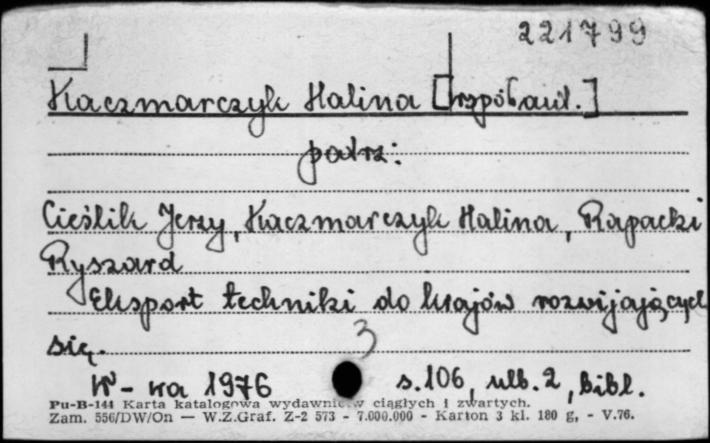 221799
Kaczmarczyk Halina [współaut.]
patrz:
Cieślik Jerzy, Kaczmarczyk Halina, Rapacki
Ryszard
Eksport techniki do krajów rozwijających
się.
3
W-wa 1976 s.106, nlb.2, bibl.
Pu-B-144 Karta katalogowa wydawnictw ciągłych i zwartych.
Zam. 556/DW/On — W.Z.Graf. Z-2 573 - 7.000.000 - Karton 3 kl. 180 g, - V.76.